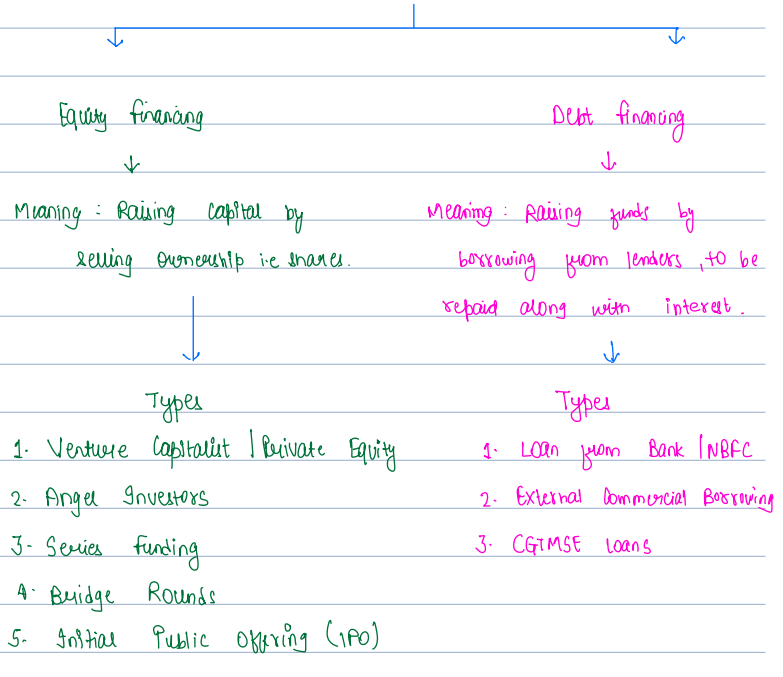 Equity financing
Meaning : Raising capital by
selling ownership i.e shares.
Types
1. Venture Capitalist | Private Equity
2. Angel Investors
3- Series funding
4. Bridge Rounds
5. Initial Public Offering (IPO)
Debt financing
Meaning : Raising funds by
borrowing from lenders, to be
repaid along with interest.
Types
1. Loan from Bank | NBFC
2. External Commercial Borrowing
3. CGTMSE Loans